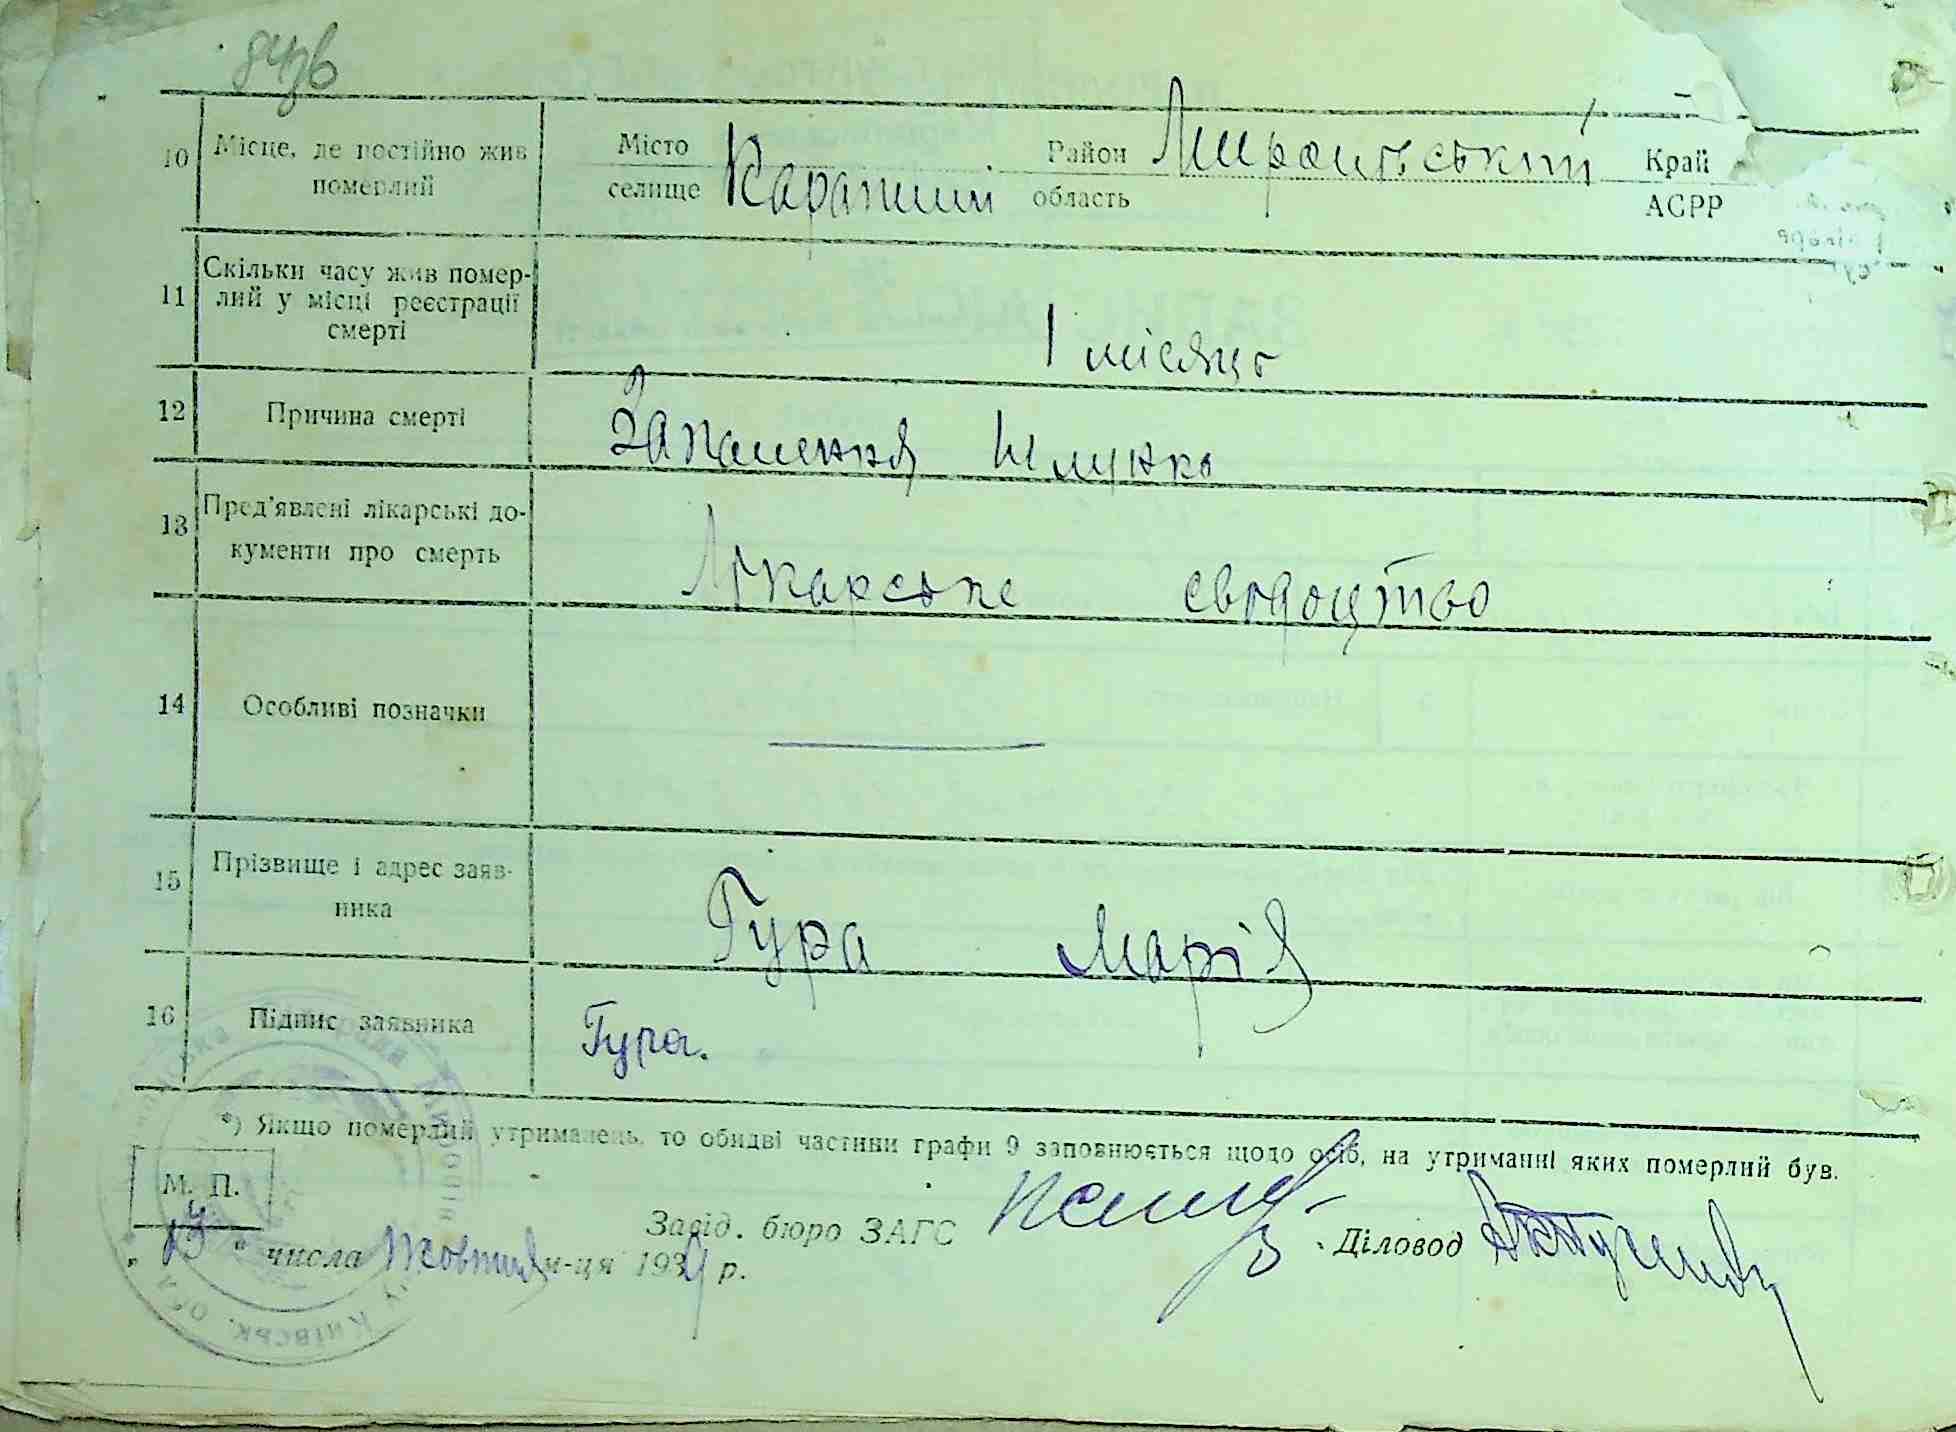 10 Місце, де постійно жив Місто Район Край
померлий селище Карапиши область Миронівський АСРР
11 Скільки часу жив помер-
лий у місці реєстрації
смерті 1 місяць
12 Причина смерті Запалення шлунка
13 Пред'явлені лікарські до-
кументи про смерть Лікарське свідоцтво
14 Особливі позначки
15 Прізвище і адрес заяв-
ника Гура Марія
16 Підпис заявника Гура.
*) Якщо померлий утриманець, то обидві частини графи 9 заповнюється щодо осіб, на утриманні яких померлий був.
М. П.
Завід. бюро ЗАГС Діловод
числа Жовтня м-ця 1939 р.